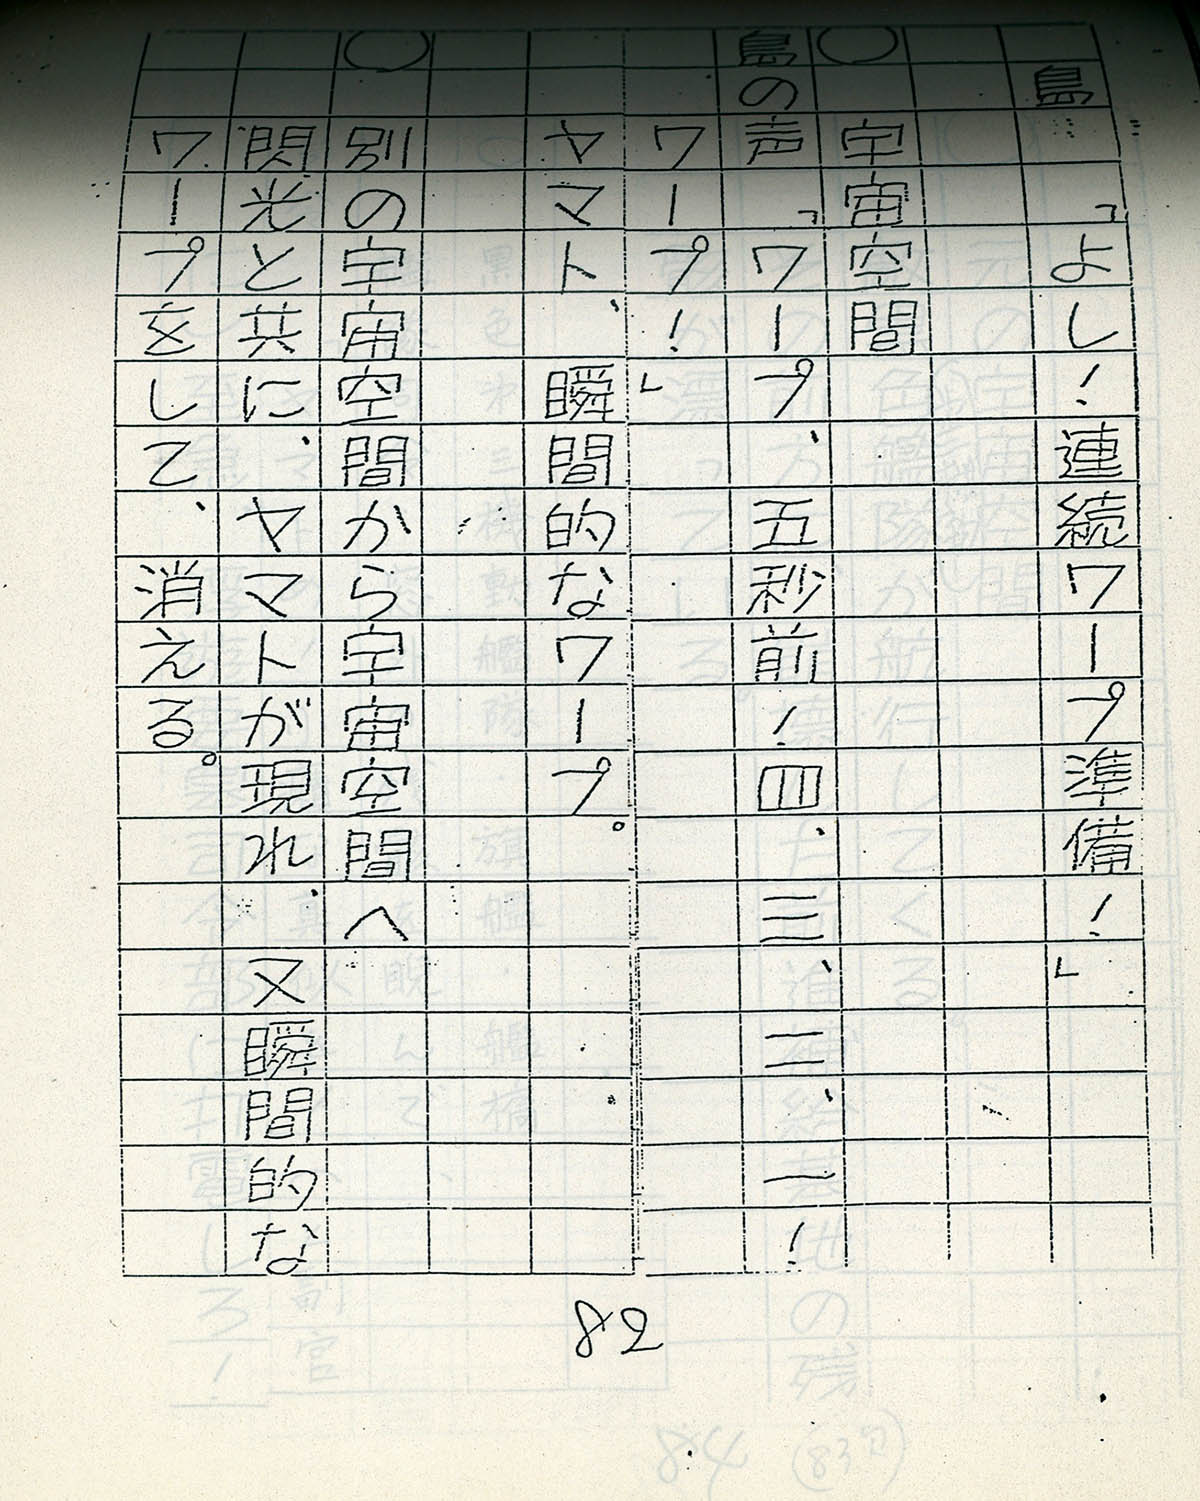 島「よし！連続ワープ準備！」
○宇宙空間
島の声「ワープ、五秒前！四、三、二、一！
ワープ！」
ヤマト、瞬間的なワープ。
○別の宇宙空間から宇宙空間へ
閃光と共に、ヤマトが現れ、又瞬間的な
ワープをして、消える。
82